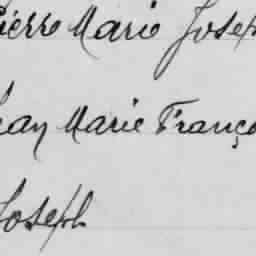 Pierre Marie Joseph
Jean Marie Franço
Joseph